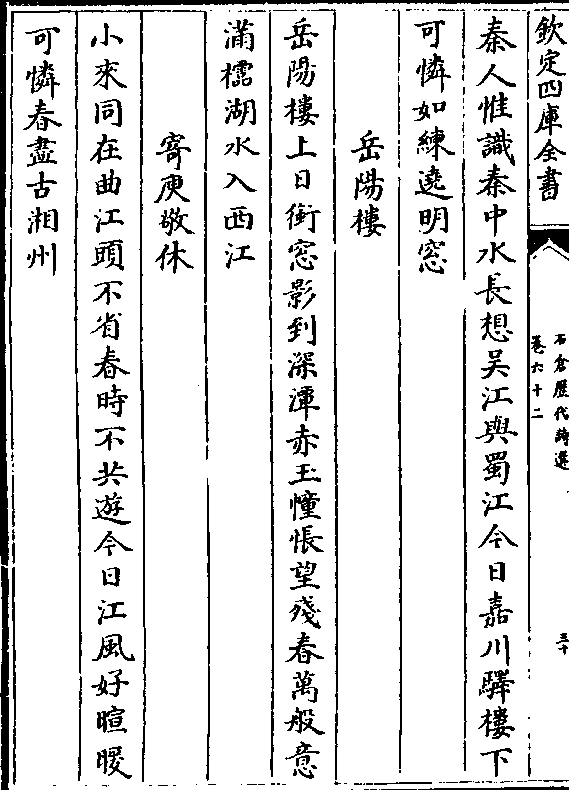 欽定四庫全書
石倉歷代詩選
卷六十二
三十
秦人惟識秦中水長想吳江與蜀江今日嘉川驛樓下
可憐如練遶明窓
岳陽樓
岳陽樓上日銜窓影到深潭赤玉幢悵望殘春萬般意
滿櫺湖水入西江
寄庾敬休
小來同在曲江頭不省春時不共遊今日江風好暄暖
可憐春盡古湘州